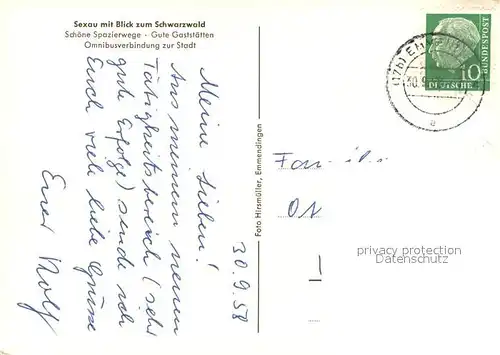 Sexau mit Blick zum Schwarzwald
Schöne Spazierwege - Gute Gaststätten
Omnibusverbindung zur Stadt
30.9.58
Meine Lieben!
Aus meinem neuen
Tätigkeitsbereich (sehr
gute Erfolge) sende ich
Euch viele liebe Grüsse
Euer Rolf
Foto Hirsmüller, Emmendingen
(17b) EMMEN
30.9.
a
10
DEUTSCHE
BUNDESPOST
Fam
privacy protection
Datenschutz